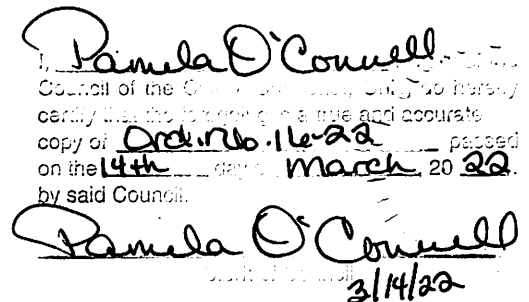 I, Pamela O'Connell
Council of the do hereby
certify that the foregoing is a true and accurate
copy of Ord. No. 16-22 passed
on the 14th day of March, 20 22.
by said Council.
Pamela O'Connell
Clerk of Council
3/14/22